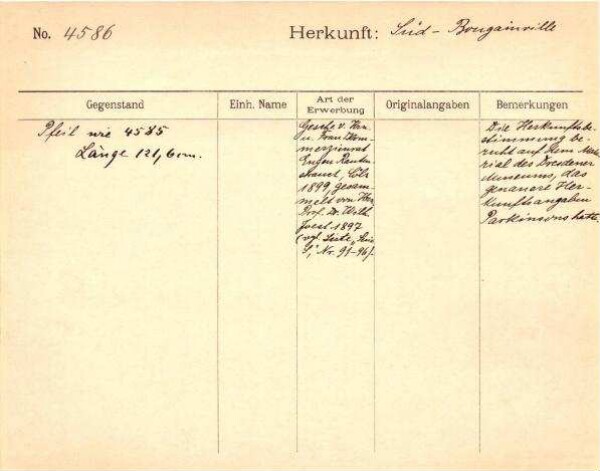 No. 4586
Herkunft: Süd - Bougainville
Gegenstand
Einh. Name
Art der Erwerbung
Originalangaben
Bemerkungen
Pfeil wie 4585
Länge 121,6 cm.
Gesch. v. Herrn
u. Frau Kom-
merzienrat
Eugen Rauten-
strauch, Cöln
1899, gesam-
melt von Herrn
Prof. Dr. Wilh.
Joest 1897
(vgl. Liste,
S, Nr. 91-96).
Die Herkunftsbe-
stimmung be-
ruht auf dem Mate-
rial des Dresdener
Museums, das
genauere Her-
kunftsangaben
Parkinsons hatte.